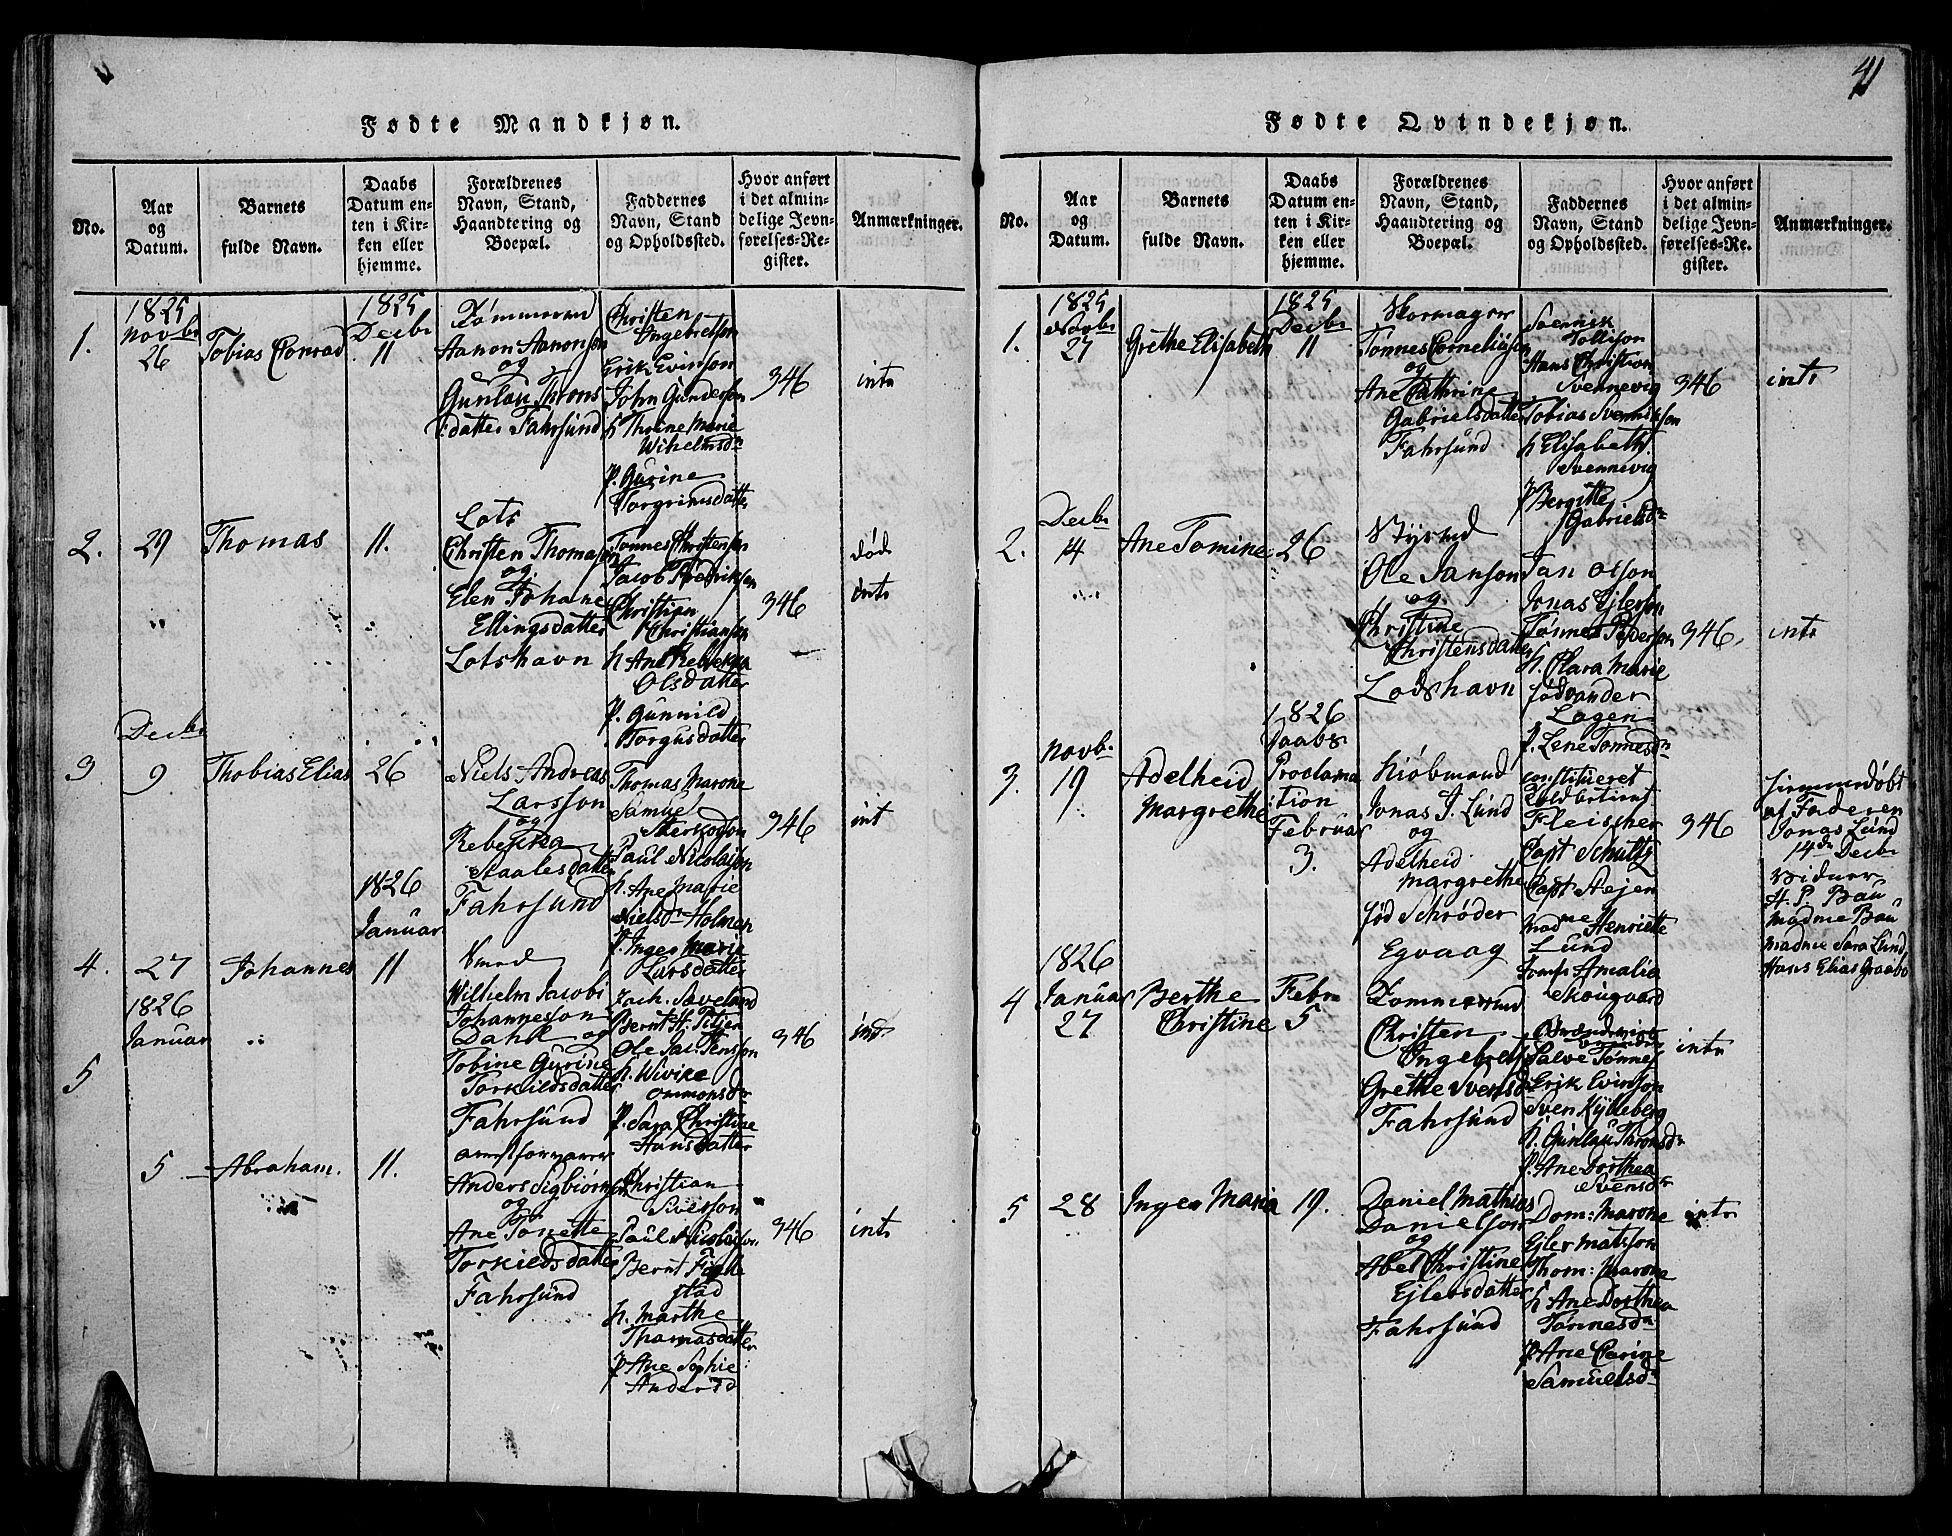 41
Fødte Mandkjøn.
No.
Aar
og
Datum.
Barnets
fulde Navn.
Daabs
Datum en-
ten i Kir-
ken eller
hjemme.
Forældrenes
Navn, Stand,
Haandtering og
Boepæl.
Faddernes
Navn, Stand
og Opholdssted.
Hvor anført
i det almin-
delige Jevn-
førelses-Re-
gister.
Anmærkninger.
1.
1825
Novbr
26
Tobias Conrad
1825
Decbr
11
Tømmermd
Aanon Aanonson
og
Gunlau Throns
datter Fahrsund
Christen
Ingebretson
Erik Evinson
John Gunderson
h Thrine Marie
Wilhelmsdr
P. Gurine
Torgrimsdatter
346
intr
2.
29
Thomas
11.
Lots
Christen Thomason
og
Elen Johane
Ellingsdatter
Lotshavn
Tønnes Christenson
Jacob Fredrikson
Christian
Christianson
h. Ane Rebekka
Olsdatter
P. Gunnild
Torgusdatter
346
død
intr
3
Decbr
9.
Thobias Elias
26
Niels Andreas
Larsson
og
Rebekka
Staalesdatter
Fahrsund
Thomas Marone
Samuel
Paul Nicolaison
h. Ane Marie
Nielsdr Holmen
P. Inger Marie
Larsdatter
346
int
4.
27
Johannes
1826
Januar
11
Smed
Wilhelm Jacobi
Johannesson
Dahl og
Tobine Gurine
Torkildsdatter
Fahrsund
Zach. Saveland
Bernt H. Petjer
Ole Jac. Jensson
h. Wivike
Ommonsdr
P. Sara Christine
Hansdatter
346
intr
5
1826
Januar
5
Abraham.
11.
arrestforvarer
Anders Sigbiørnsen
og
Ane Tonette
Torkildsdatter
Fahrsund
Christian
Sivesson
Paul Nicolaison
Bernt Fielle
stad
h. Marthe
Thomasdatter
P Ane Sophie
Andersd
346
intr
Fødte Qvindekjøn.
No.
Aar
og
Datum.
Barnets
fulde Navn.
Daabs
Datum en-
ten i Kir-
ken eller
hjemme.
Forældrenes
Navn, Stand,
Haandtering og
Boepæl.
Faddernes
Navn, Stand
og Opholdssted.
Hvor anført
i det almin-
delige Jevn-
førelses-Re-
gister.
Anmærkninger.
1.
1825
Novbr
27
Grethe Elisabeth
1825
Decbr
11
Skomager
Tønnes Corneliusen
og
Ane Cathrine
Gabrielsdatter
Fahrsund
Svennik
Tollison
Hans Christian
Svennevig
Tobias Svennikson
h Elisabeth
Svennevig
P Bergitte
Gabrielsdr
346
intr
2.
Decbr
14
Ane Tomine
26
Styrmd
Ole Janson
og
Christine
Christensdatter
Lodshavn
Jan Olson
Jonas Ejlerson
Tønnes Pederson
h. Clara Marie
fød vander
Lagen
P. Lene Tønnesdr
346,
intr
3.
Novb.
19
Adelheid
Margrethe
1826
Daabs
Proclama
tion
Februar
3.
Kiøbmand
Jonas J. Lund
og
Adelheid
Margrethe
fød Schrøder
Egvaag
constitueret
Toldbetient
Fleischer
Capt Schultz
Capt Stejen
Madme Henriette
Lund
Jomfr Amalia
Skougaard
346
hjemmedøbt
af Faderen
Jonas Lund
14de Decbr
vidner
H. P. Bau
Madme Bau
Madme Sara Lund
Hans Elias Graabo
4
1826
Januar
27
Berthe
Christine
Febr
5
Tømmermd
Christen
Ingebrets
Grethe Svensd
Fahrsund
Salve Tønnes
Erik Evinson
Sven Kylleberg
h. Gunlau Thronsdr
P. Ane Dorthea
Svensdr
intr
5
28
Inger Maria
19.
Daniel Mathias
Danielson
og
Abel Christine
Ejlersdatter
Fahrsund
Dom: Marone
Ejler Matisson
Thom: Marone
h Ane Dorthea
Tønnesdr
P Ane Carine
Samuelsdr
intr